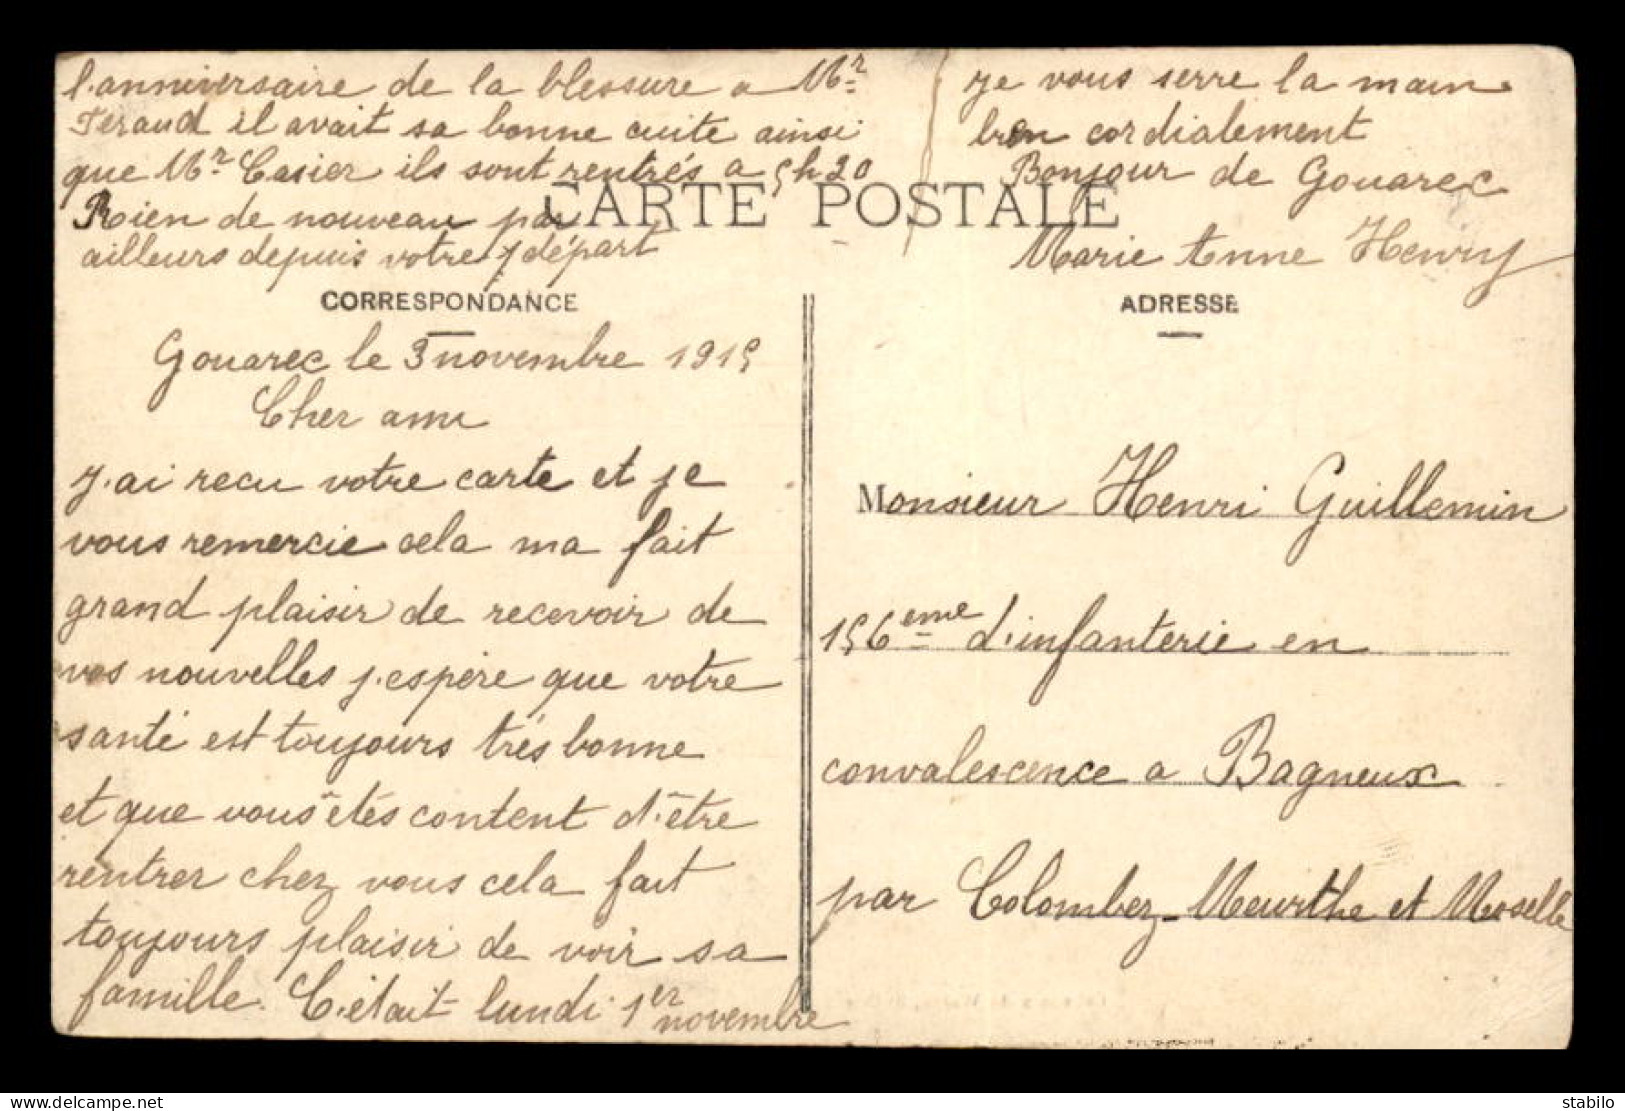 Gouarec le 3 novembre 1915
Cher ami
J'ai recu votre carte et je
vous remercie cela ma fait
grand plaisir de recevoir de
vos nouvelles j'espère que votre
santé est toujours très bonne
et que vous êtés content d'être
rentrer chez vous cela fait
toujours plaisir de voir sa
famille. C'était lundi 1er
novembre
l'anniversaire de la blessure a Mr
Feraud il avait sa bonne cuite ainsi
que Mr Casier ils sont rentrés a 5h20
Rien de nouveau par
ailleurs depuis votre départ
je vous serre la main
bien cordialement
Bonjour de Gouarec
Marie Anne Henry
CARTE POSTALE
CORRESPONDANCE
ADRESSE
Monsieur Henri Guillemin
156eme d'infanterie en
convalescence a Bagneux
par Colombez - Meurthe et Moselle
stabilo
www.delcampe.net